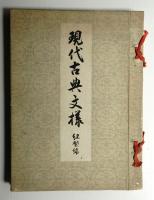 現代古典文様